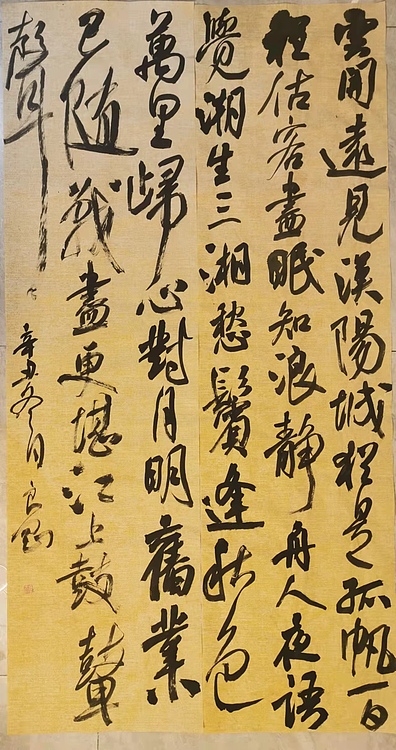 雲開遠見漢陽城猶是孤帆一日
程估客盡眠知浪靜舟人夜語
覺潮生三湘愁鬢逢秋色
萬里歸心對月明舊業
已随戰盡更堪江上鼓鼙
聲
辛丑冬月良